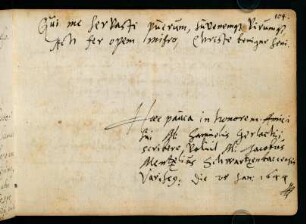 104.
Qui me servasti puerum, Iuvenemq, Virumq,
Fer opem misero, Christe benigne seni.
Haec pauca in honorem Amici
sui M. Samuelis Gerlachii
scribere voluit M. Jacobus
Mentzelius Schwartzenbacensis
Variscq. die 08 Jan: 1644